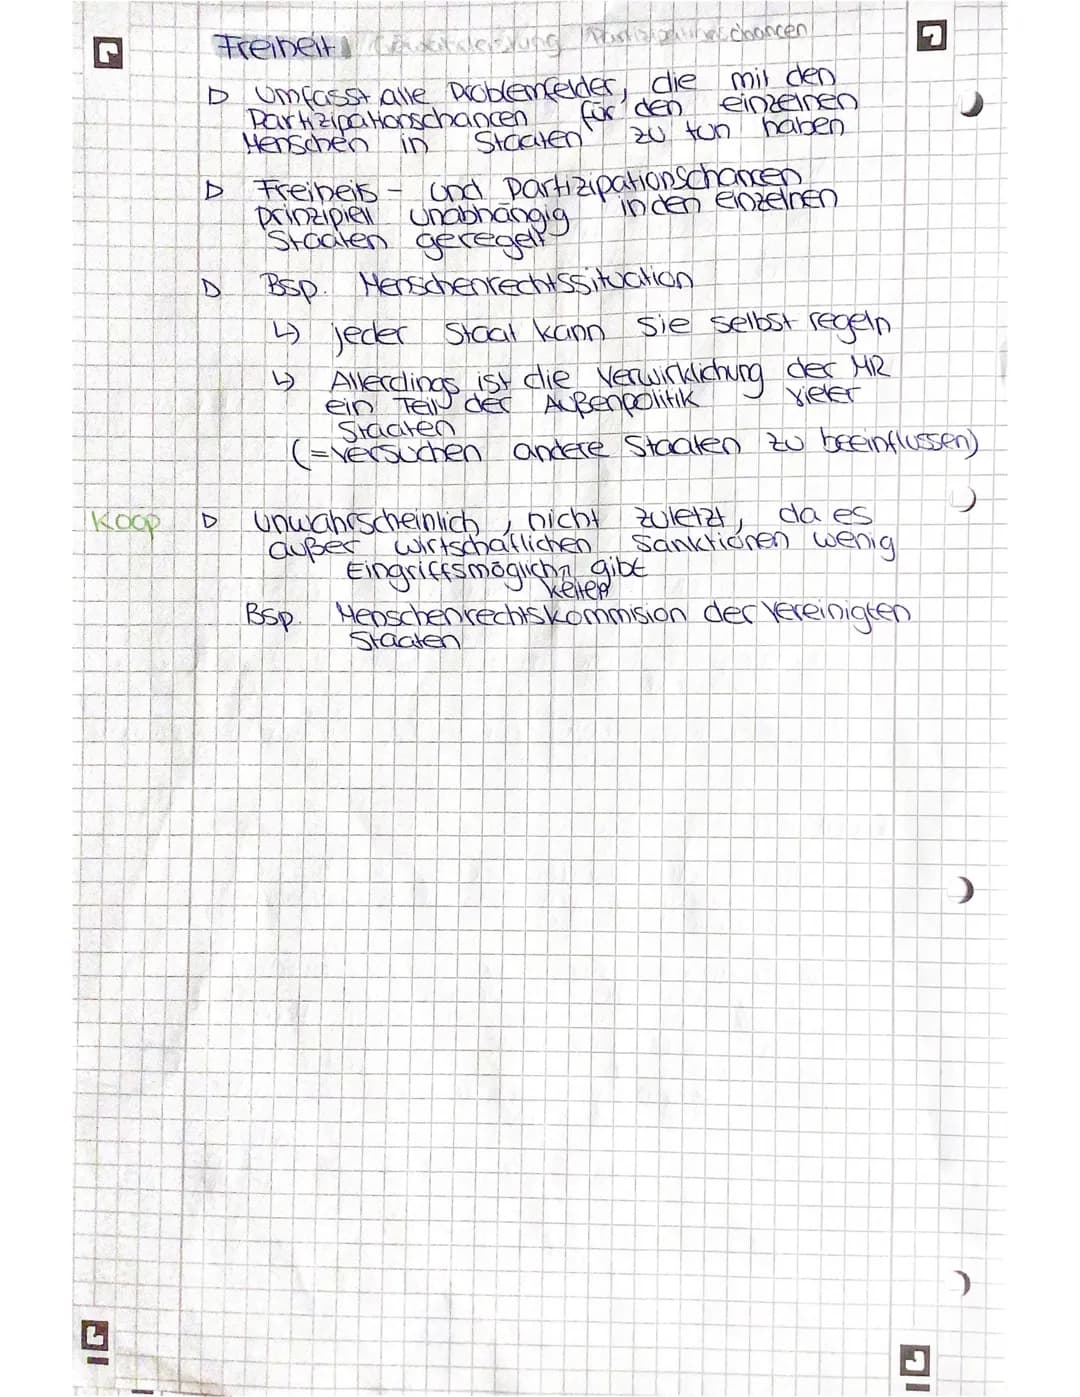 Freiheit Partizipationschancen
▷ Umfasst alle Problemfelder, die mit den
Partizipationschancen für den einzelnen
Menschen in Staaten zu tun haben
▷ Freiheits- und Partizipationschancen
prinzipiell unabhängig in den einzelnen
Staaten geregelt
▷ Bsp. Menschenrechtssituation
↳ jeder Staat kann sie selbst regeln
↳ Allerdings ist die Verwirklichung der MR
ein Teil der Außenpolitik vieler
Staaten
(=versuchen andere Staaten zu beeinflussen)
Koop ▷ unwahrscheinlich, nicht zuletzt, da es
außer wirtschaftlichen Sanktionen wenig
Eingriffsmöglichn gibt
keiten
Bsp. Menschenrechtskommision der Vereinigten
Staaten